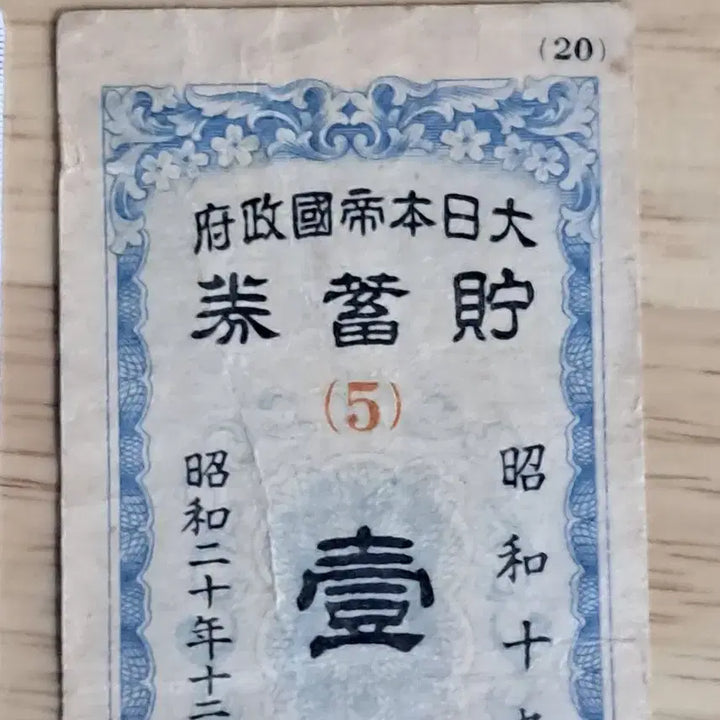 (20)
大日本帝國政府
貯蓄券
(5)
昭和十
壹
昭和二十年十二